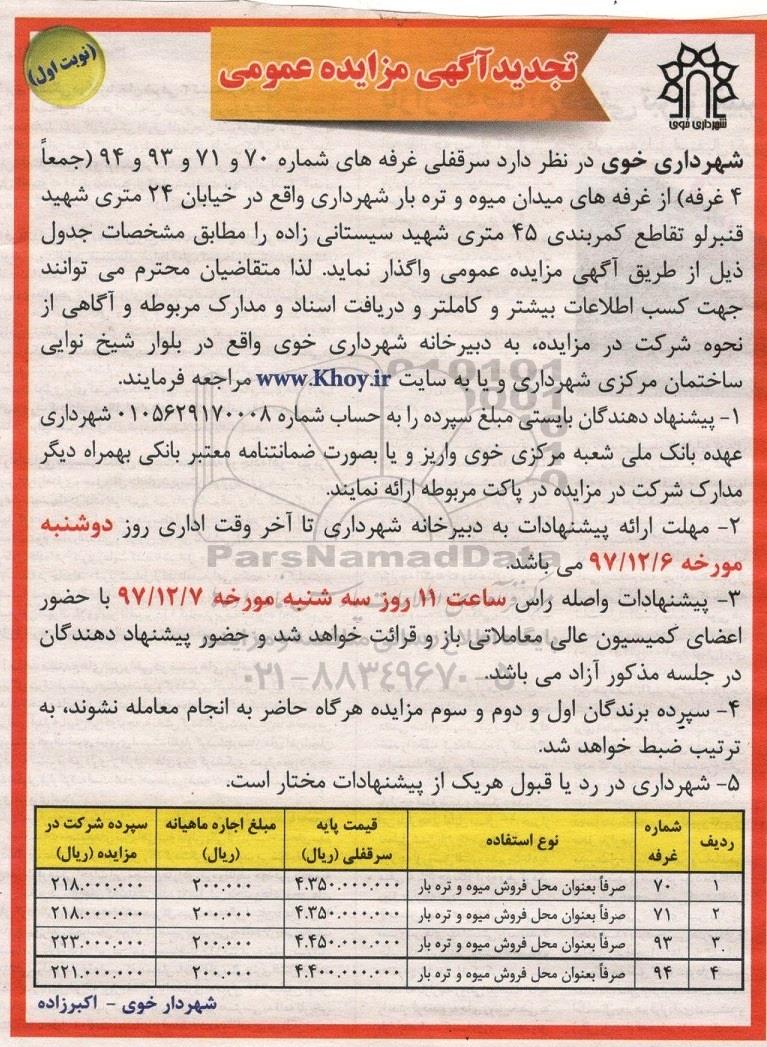 (نوبت اول)
تجدید آگهی مزایده عمومی
شهرداری خوی
شهرداری خوی در نظر دارد سرقفلی غرفه های شماره ۷۰ و ۷۱ و ۹۳ و ۹۴ (جمعاً
۴ غرفه) از غرفه های میدان میوه و تره بار شهرداری واقع در خیابان ۲۴ متری شهید
قنبرلو تقاطع کمربندی ۴۵ متری شهید سیستانی زاده را مطابق مشخصات جدول
ذیل از طریق آگهی مزایده عمومی واگذار نماید. لذا متقاضیان محترم می توانند
جهت کسب اطلاعات بیشتر و کاملتر و دریافت اسناد و مدارک مربوطه و آگاهی از
نحوه شرکت در مزایده، به دبیرخانه شهرداری خوی واقع در بلوار شیخ نوایی
ساختمان مرکزی شهرداری و یا به سایت www.Khoy.ir مراجعه فرمایند.
۱- پیشنهاد دهندگان بایستی مبلغ سپرده را به حساب شماره ۰۱۰۵۶۲۹۱۷۰۰۰۸ شهرداری
عهده بانک ملی شعبه مرکزی خوی واریز و یا بصورت ضمانتنامه معتبر بانکی بهمراه دیگر
مدارک شرکت در مزایده در پاکت مربوطه ارائه نمایند.
۲- مهلت ارائه پیشنهادات به دبیرخانه شهرداری تا آخر وقت اداری روز دوشنبه
مورخه ۹۷/۱۲/۶ می باشد.
ParsNamadData
۳- پیشنهادات واصله راس ساعت ۱۱ روز سه شنبه مورخه ۹۷/۱۲/۷ با حضور
اعضای کمیسیون عالی معاملاتی باز و قرائت خواهد شد و حضور پیشنهاد دهندگان
در جلسه مذکور آزاد می باشد.
۰۲۱-۸۸۳۴۹۶۷۰-۵
۴- سپرده برندگان اول و دوم و سوم مزایده هرگاه حاضر به انجام معامله نشوند، به
ترتیب ضبط خواهد شد.
۵- شهرداری در رد یا قبول هریک از پیشنهادات مختار است.
ردیف شماره غرفه نوع استفاده قیمت پایه سرقفلی (ریال) مبلغ اجاره ماهیانه (ریال) سپرده شرکت در مزایده (ریال)
۱ ۷۰ صرفاً بعنوان محل فروش میوه و تره بار ۴.۳۵۰.۰۰۰.۰۰۰ ۲۰۰.۰۰۰ ۲۱۸.۰۰۰.۰۰۰
۲ ۷۱ صرفاً بعنوان محل فروش میوه و تره بار ۴.۳۵۰.۰۰۰.۰۰۰ ۲۰۰.۰۰۰ ۲۱۸.۰۰۰.۰۰۰
۳ ۹۳ صرفاً بعنوان محل فروش میوه و تره بار ۴.۴۵۰.۰۰۰.۰۰۰ ۲۰۰.۰۰۰ ۲۲۳.۰۰۰.۰۰۰
۴ ۹۴ صرفاً بعنوان محل فروش میوه و تره بار ۴.۴۰۰.۰۰۰.۰۰۰ ۲۰۰.۰۰۰ ۲۲۱.۰۰۰.۰۰۰
شهردار خوی - اکبرزاده